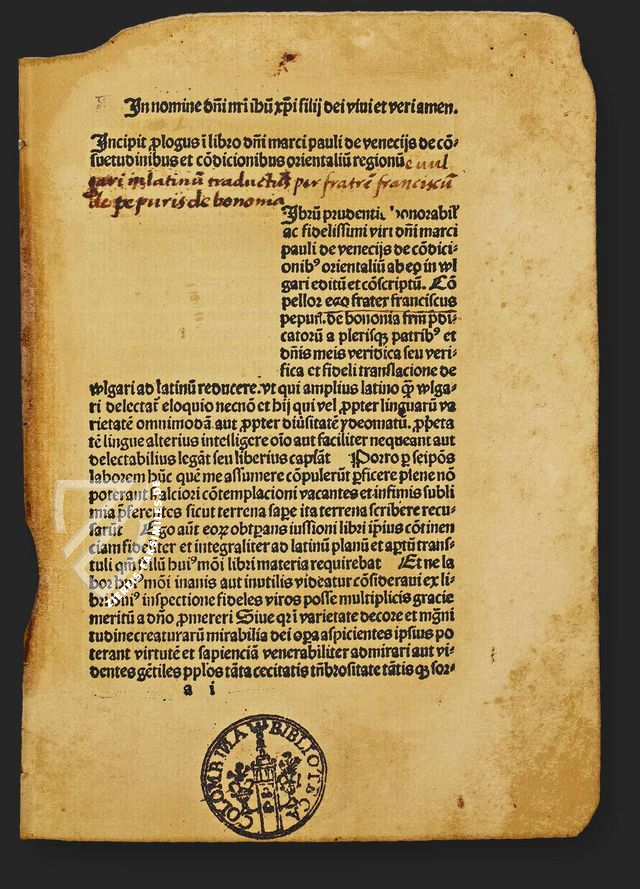 In nomine dñi nr̃i ihũ xp̃i filij dei viui et veri amen.
Incipit ꝓlogus ĩ libro dñi marci pauli de venecijs de cõ⸗
suetudinibus et cõdicionibus orientaliũ regionũ e vul
gari in latinũ traductus per fratrẽ franciscũ
de pepuris de bononia
Ibrũ prudentis honorabil̃
ac fidelissimi viri dñi marci
pauli de venecijs de cõdici⸗
onibꝰ orientaliũ ab eo in wl
gari editũ et cõscriptũ. Cõ
pellor ego frater franciscus
pepuri. de bononia frm̃ p̃di⸗
catorũ a plerisqꝫ patribꝰ et
dñis meis veridica seu veri⸗
fica et fideli translacione de
wlgari ad latinũ reducere. vt qui amplius latino qp̃ wlga⸗
ri delectat̃ eloquio necnõ et hij qui vel ꝓpter linguarũ va
rietatẽ omnimodã aut ꝓpter diuͥsitatẽ ydeomatũ. ꝓp̃eta
tẽ lingue alterius intelligere oĩo aut faciliter nequeant aut
delectabilius legãt seu liberius capiãt Porro ꝑ seip̃os
laborem hũc quẽ me assumere cõpulerũt ꝑficere plene nõ
poterant alciori cõtemplacioni vacantes et infimis subli
mia p̃ferentes sicut terrena sape ita terrena scribere recu⸗
sarũt Ego aũt eoꝝ obtꝑans iussioni libri ip̃ius cõtinen
ciam fideliter et integraliter ad latinũ planũ et aꝑtũ trans⸗
tuli qm̃ stilũ huiꝰ mõi libri materia requirebat Et ne la
bor huiꝰ mõi inanis aut inutilis videatur cõsideraui ex li⸗
bri huiꝰ inspectione fideles viros posse multiplicis gracie
meritũ a dño ꝓmereri Siue qr̃ i varietate decore et mg̃ni
tudine creaturarũ mirabilia dei oꝑa aspicientes ipsius po
terant virtutẽ et sapienciã venerabiliter admirari aut vi⸗
dentes gẽtiles pp̃los tãta cecitatis tñbrositate tãtis qꝫ sor⸗
a i
COLOMBINA BIBLIOTECA